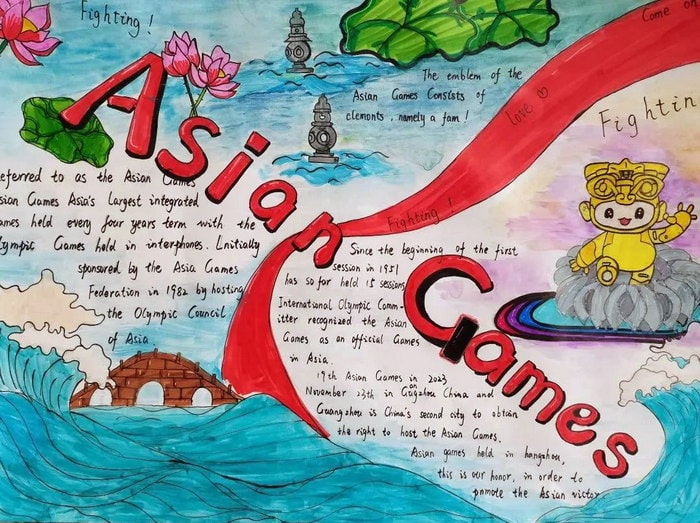 Fighting !
Come on
The emblem of the
Asian Games Consists of
clemonts , namely a fam !
Love
Fightin
Asian Games
eferred to as the Asian Games
sian Games Asia's Largest integrated
ames held every four years term with the
lympic Games hold in interphones. Lnitially
sponsored by the Asia Games
Federation in 1982 by hosting
the Olympic Council
of Asia
Fighting !
Since the beginning of the first
session in 1951
has so far held 15 sessions
International Olympic Comm-
itter recognized the Asian
Games as an official Games
in Asia.
19th Asian Games in 2023
November 23th in on China and
Guangzhou is China's second city to obtain
the right to host the Asian Games.
Asian games held in hangzhou,
this is our honor, in order to
promote the Asian victor